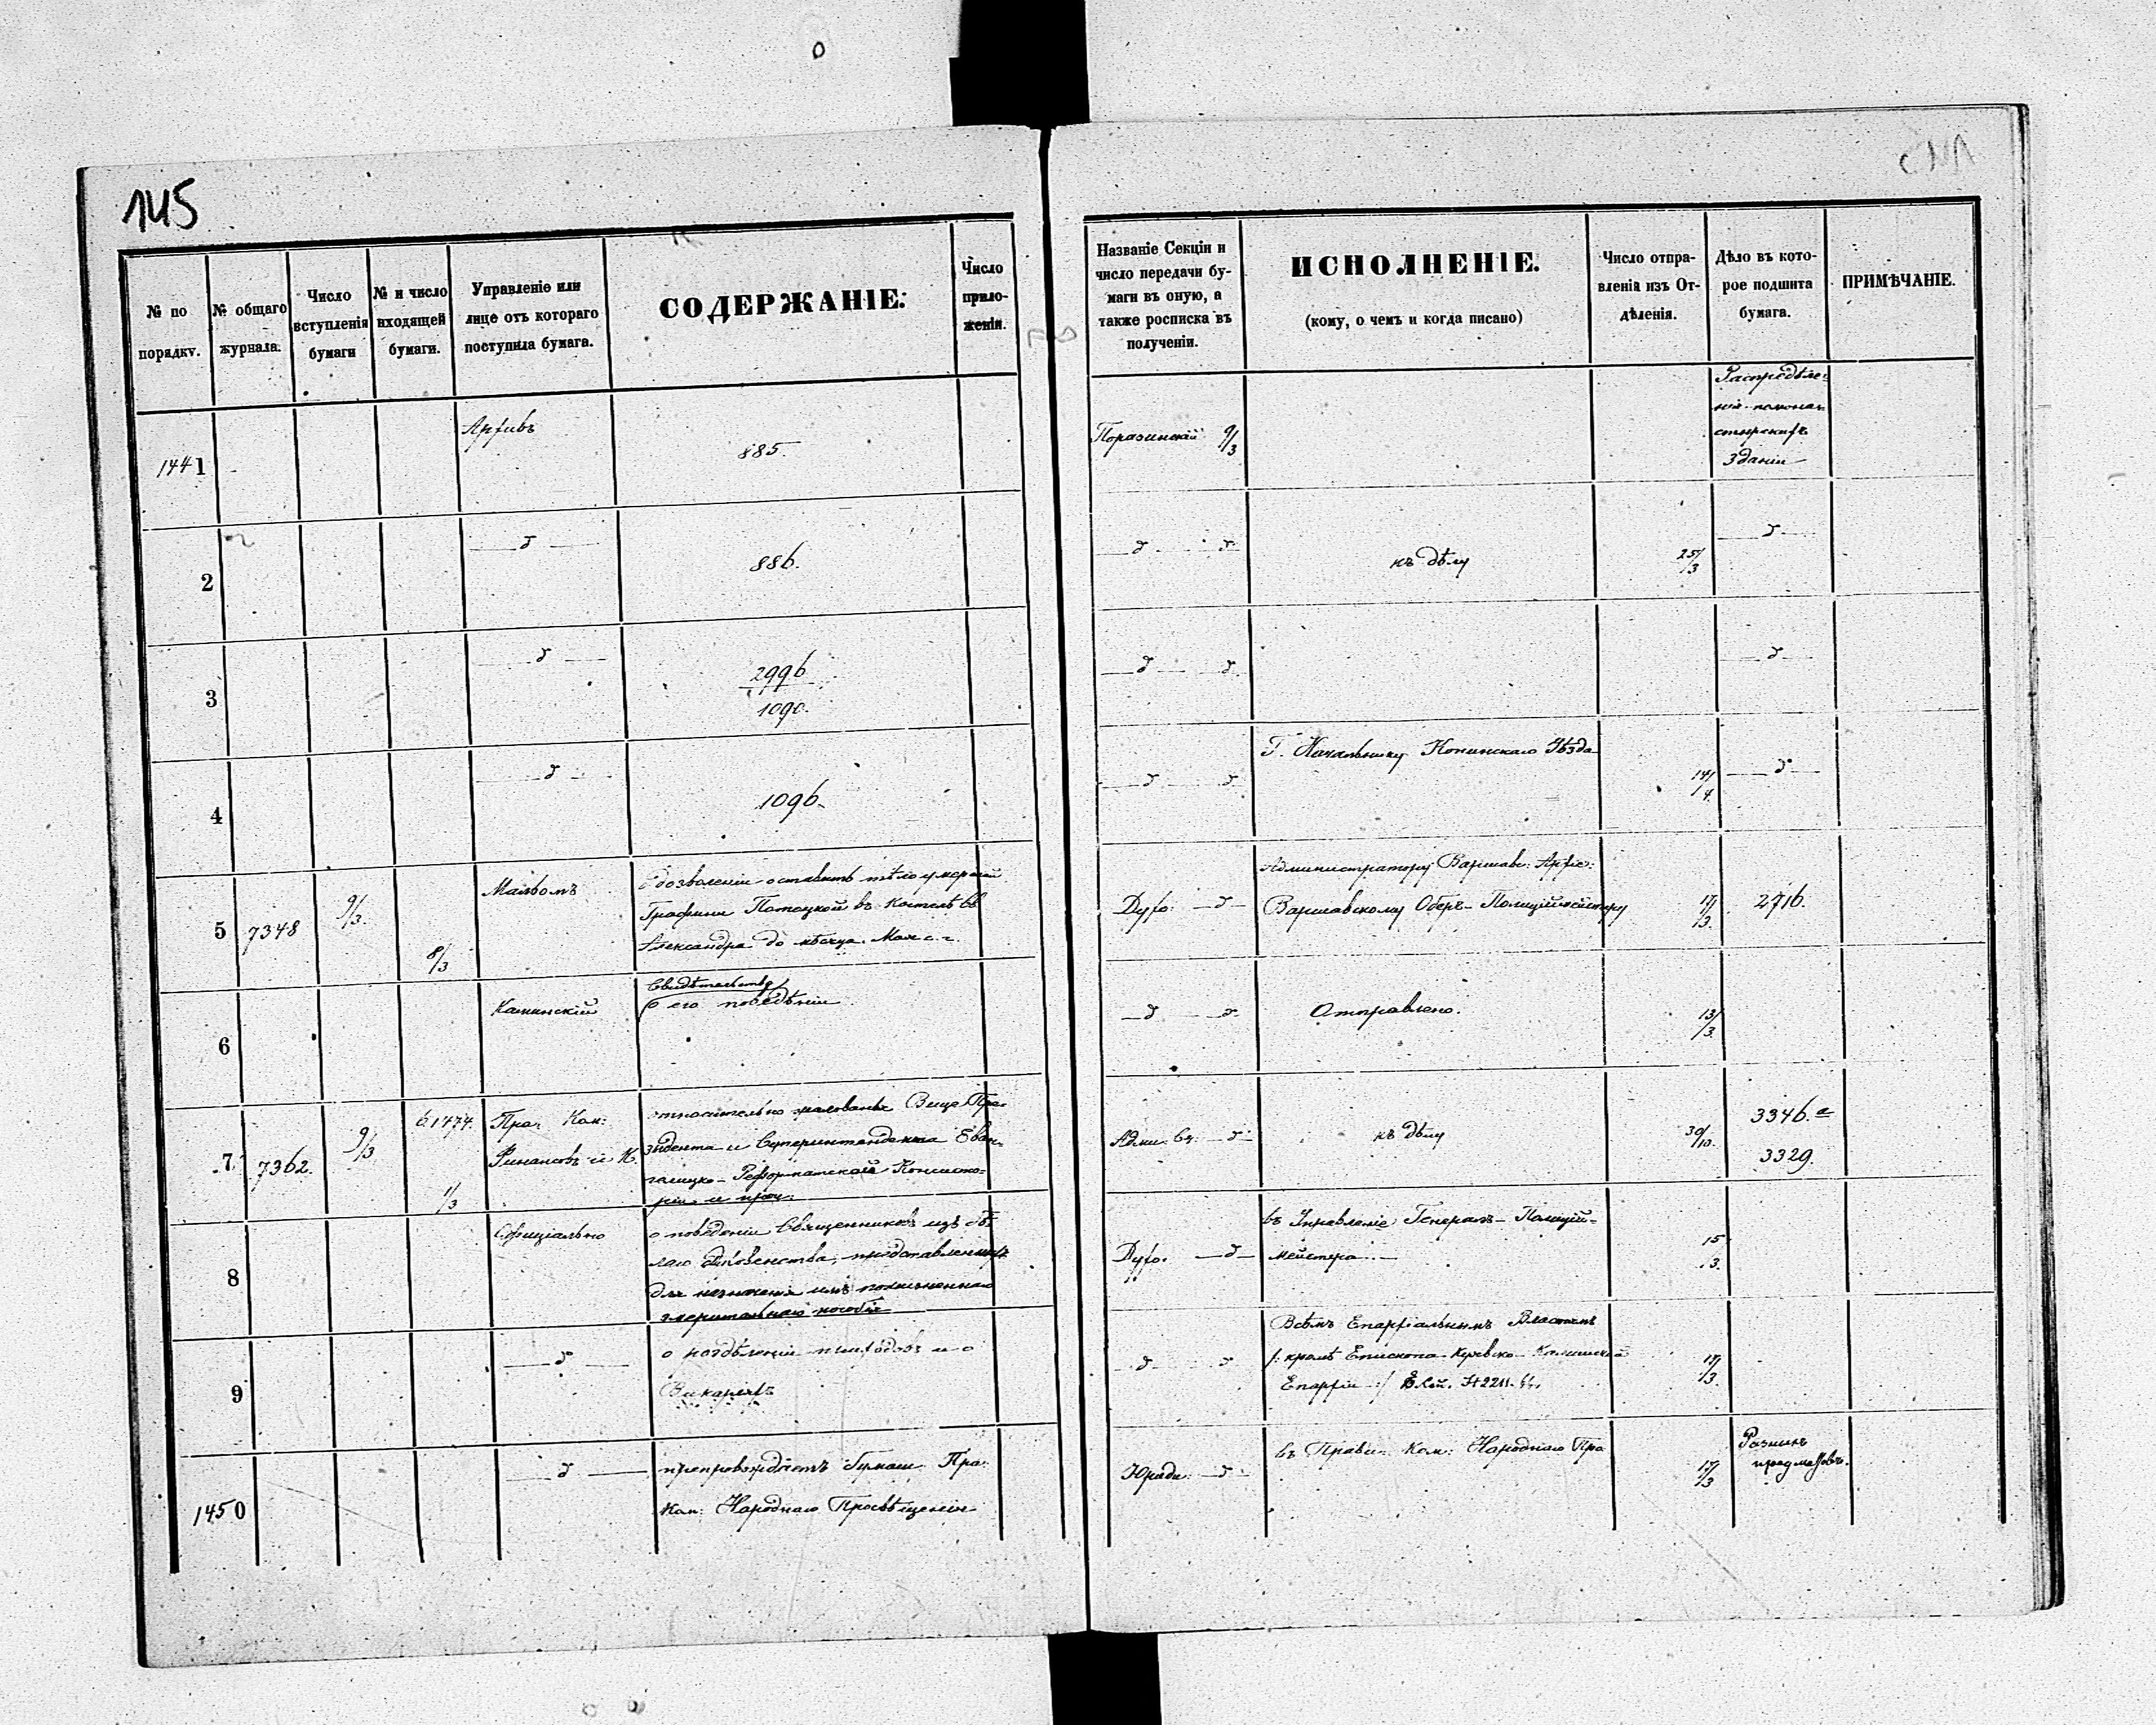 145
№ по порядку.
№ общаго журнала.
Число вступленія бумаги
№ и число входящей бумаги.
Управленіе или лице отъ котораго поступила бумага.
СОДЕРЖАНІЕ.
Число приложенія.
Названіе Секціи и число передачи бумаги въ оную, а также росписка въ полученіи.
ИСПОЛНЕНІЕ.
(кому, о чемъ и когда писано)
Число отправленія изъ Отдѣленія.
Дѣло въ которое подшита бумага.
ПРИМѢЧАНІЕ.
1441
Архивъ
885.
9/3
Распредѣле-
зданій
2
886.
къ дѣлу
25/3
3
2996
1090.
4
1096.
Г. Начальнику Конинскаго Уѣзда
14/4.
5
7348
9/3.
8/3
о дозволеніи оставить тѣло умершей
Графини Потоцкой въ костелѣ Св
Александра до мѣсяца Мая с. г.
Духо:
Администратору Варшав: Архіе:
Варшавскому Оберъ-Полиціймейстеру
17/3.
2716.
6
Свидѣтельство
о его поведеніи
Отправлено.
13/3.
7
7362.
9/3
61474.
1/3
Пра: Ком:
Финансовъ и К.
относительно жалованья Вице Пре-
зидента и Суперинтендента Еван-
гелицко-Реформатской Консисто-
ріи и проч.
къ дѣлу
30/10.
3346.а
3329.
8
Офиціально
о поведеніи Священниковъ изъ бѣ-
лаго духовенства, представленныхъ
для назначенія имъ пожизненнаго
эмеритальнаго пособія
Духо.
въ Управленіе Генералъ-Полицій-
мейстера
15
3.
9
о приходовъ и о
Викаріяхъ
Всѣмъ Епархіальнымъ Властямъ
/: кромѣ Епископа Куявско-Калишской
Епархіи :/
17/3.
1450
препровождаетъ бумаги Пра:
Ком: Народнаго Просвѣщенія
Юриди:
въ Прави: Ком: Народнаго Про
17/3